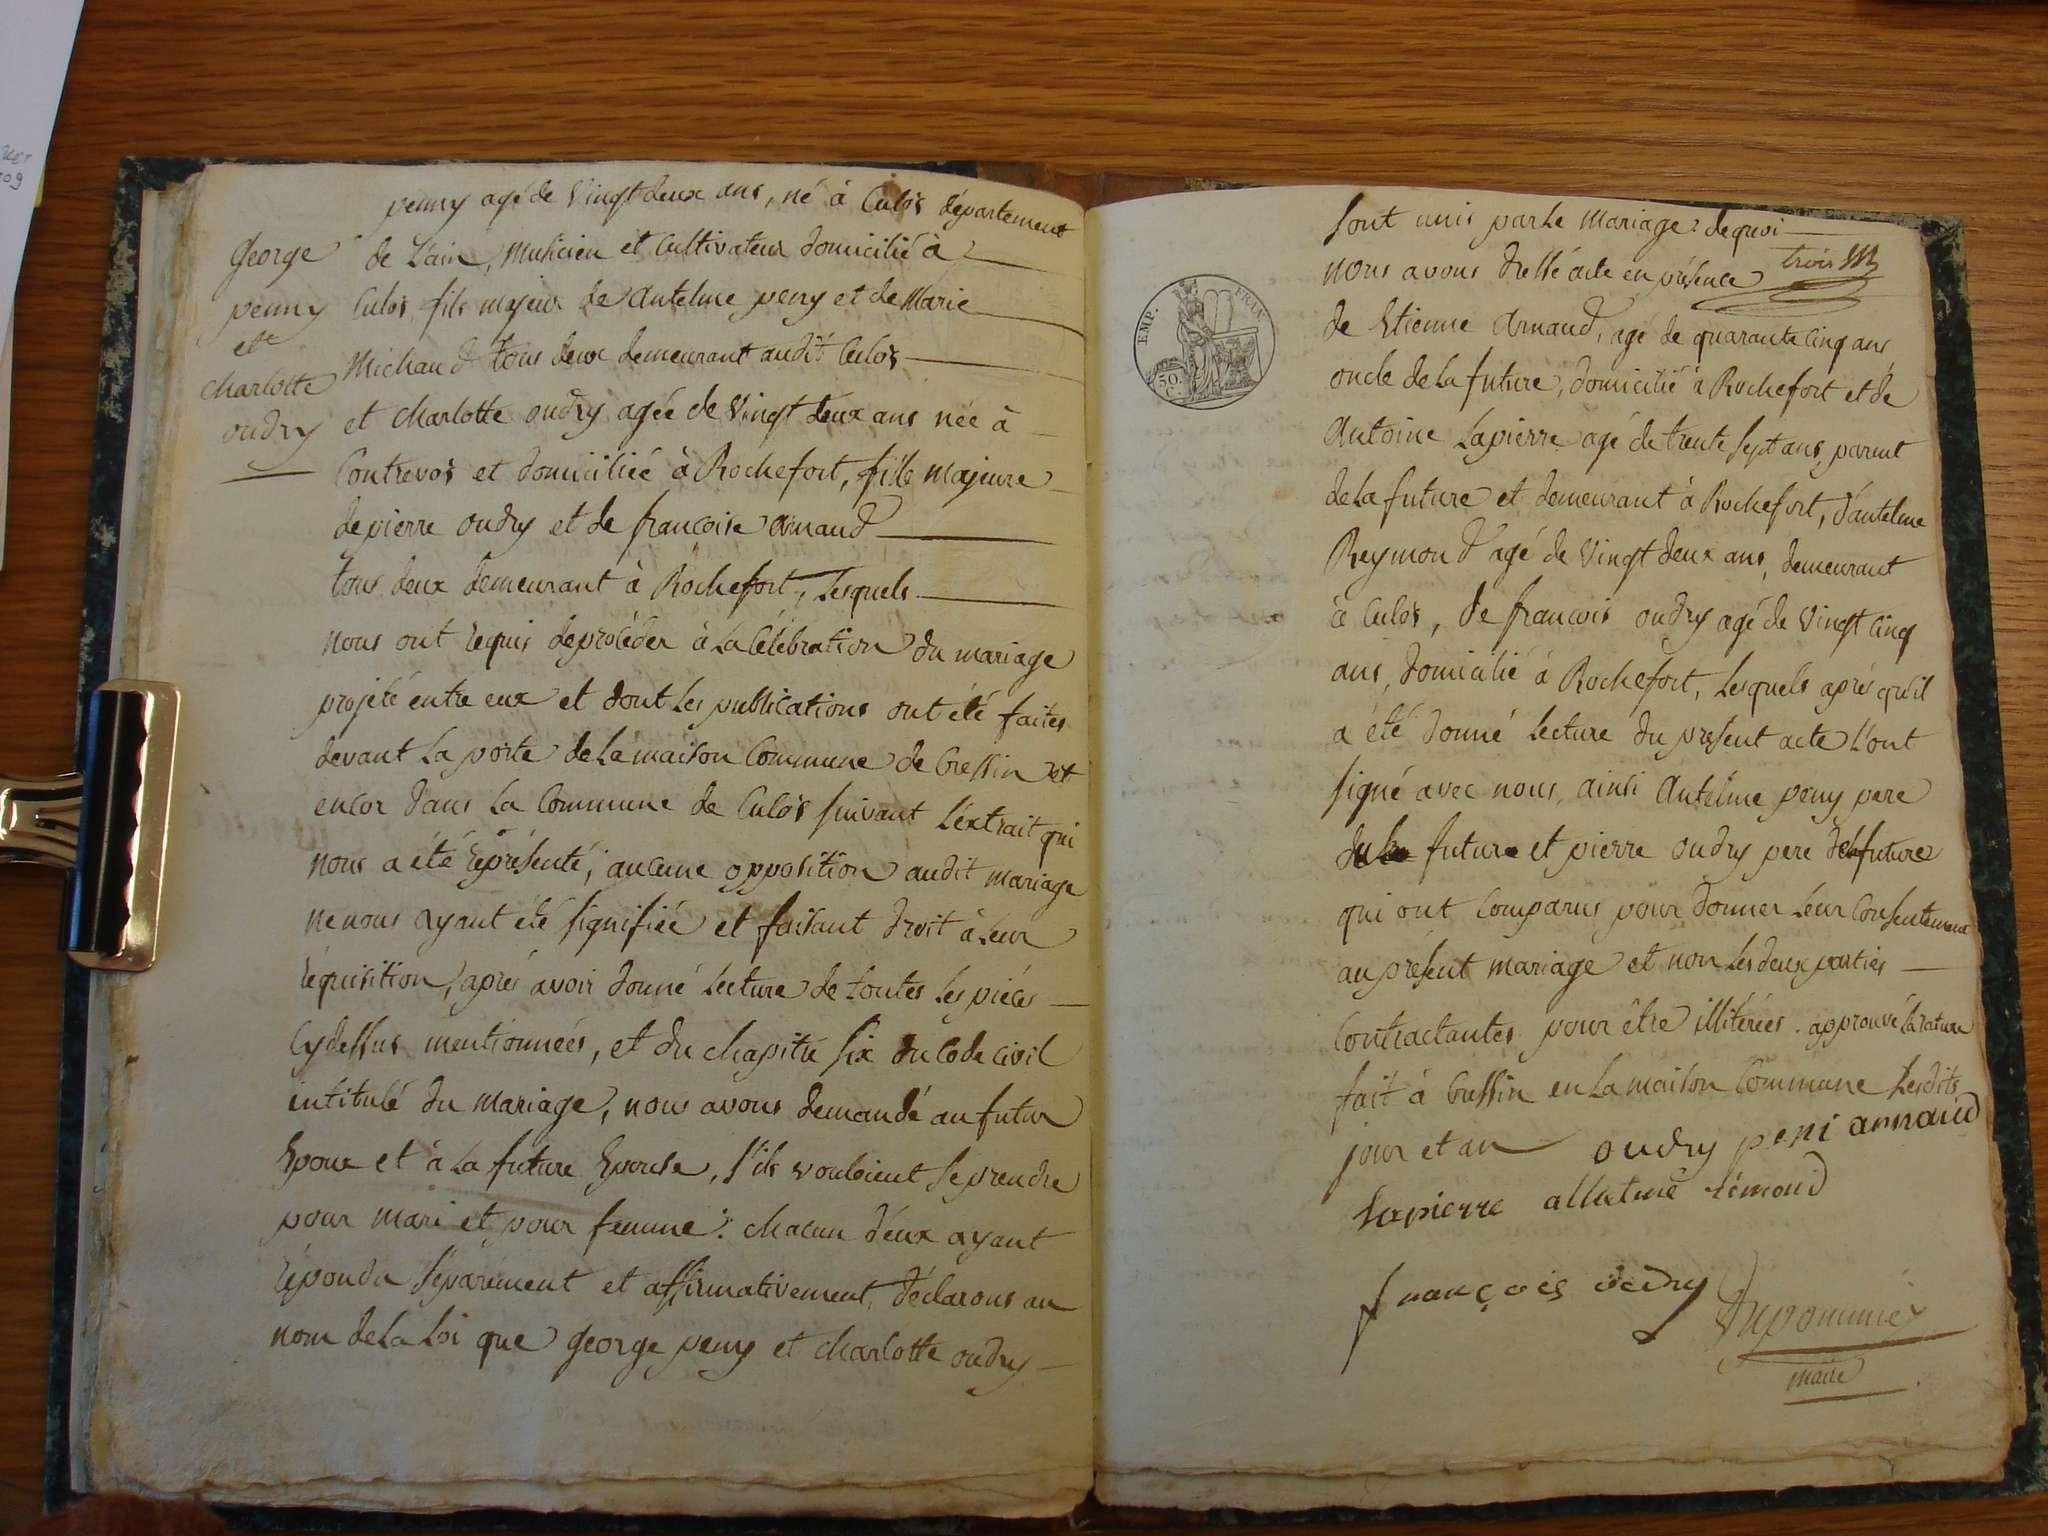 penny agé de Vingt deux ans, né à Culos département
George
penny
et
Charlotte
oudry
de L'ain, Musicien et Cultivateur domicilié à
Culos, fils majeur de Antelme peny et de Marie
Michaud tous deux demeurant audit Culos
et charlotte oudry agée de Vingt deux ans née à
Contrevos et domiciliée à Rochefort, fille majeure
de pierre oudry et de francoise arnaud
tous deux demeurant à Rochefort, Lesquels
nous ont requis de procéder à La Célébration du mariage
projeté entre eux et dont Les publications ont été faites
devant La porte de La maison Commune de Cressin et
encor dans La Commune de Culos suivant L'extrait qui
nous a été représenté; aucune opposition audit mariage
ne nous ayant été signifiée et faisant droit à Leur
réquisition, aprés avoir donné Lecture de toutes Les piéces
Cydessus mentionnées, et du chapitre six du Code Civil
intitulé du mariage, nous avous demandé au futur
Epoux et à La future Epouse, s'ils vouloient se prendre
pour mari et pour femme: chacun d'eux ayant
répondu séparément et affirmativement, déclarons au
nom de La Loi que george peny et charlotte oudry
sont unis par Le Mariage: de quoi
nous avons dressé acte en présence
trois
de Etienne Arnaud, agé de quarante Cinq ans
oncle de La future, domicilié à Rochefort et de
Antoine Lapierre agé de trente sept ans, parent
de La future et demeurant à Rochefort, d'antelme
Reymond agé de Vingt deux ans, demeurant
à Culos, de francois oudry agé de Vingt Cinq
ans, domicilié à Rochefort, Lesquels aprés qu'il
a été donné Lecture du présent acte L'ont
signé avec nous, ainsi Antelme peny pere
du future et pierre oudry pere de la future
qui ont Comparus pour donner Leur Consentement
au présent mariage et non Les deux parties
Contractantes pour être illitérées. approuvé La rature
fait à Cressin en La maison Commune Lesdits
jour et an oudry peni arnaud
Lapierre rémond
françois oudry
Dupommier
maire
EMP. FRANX
50. C.